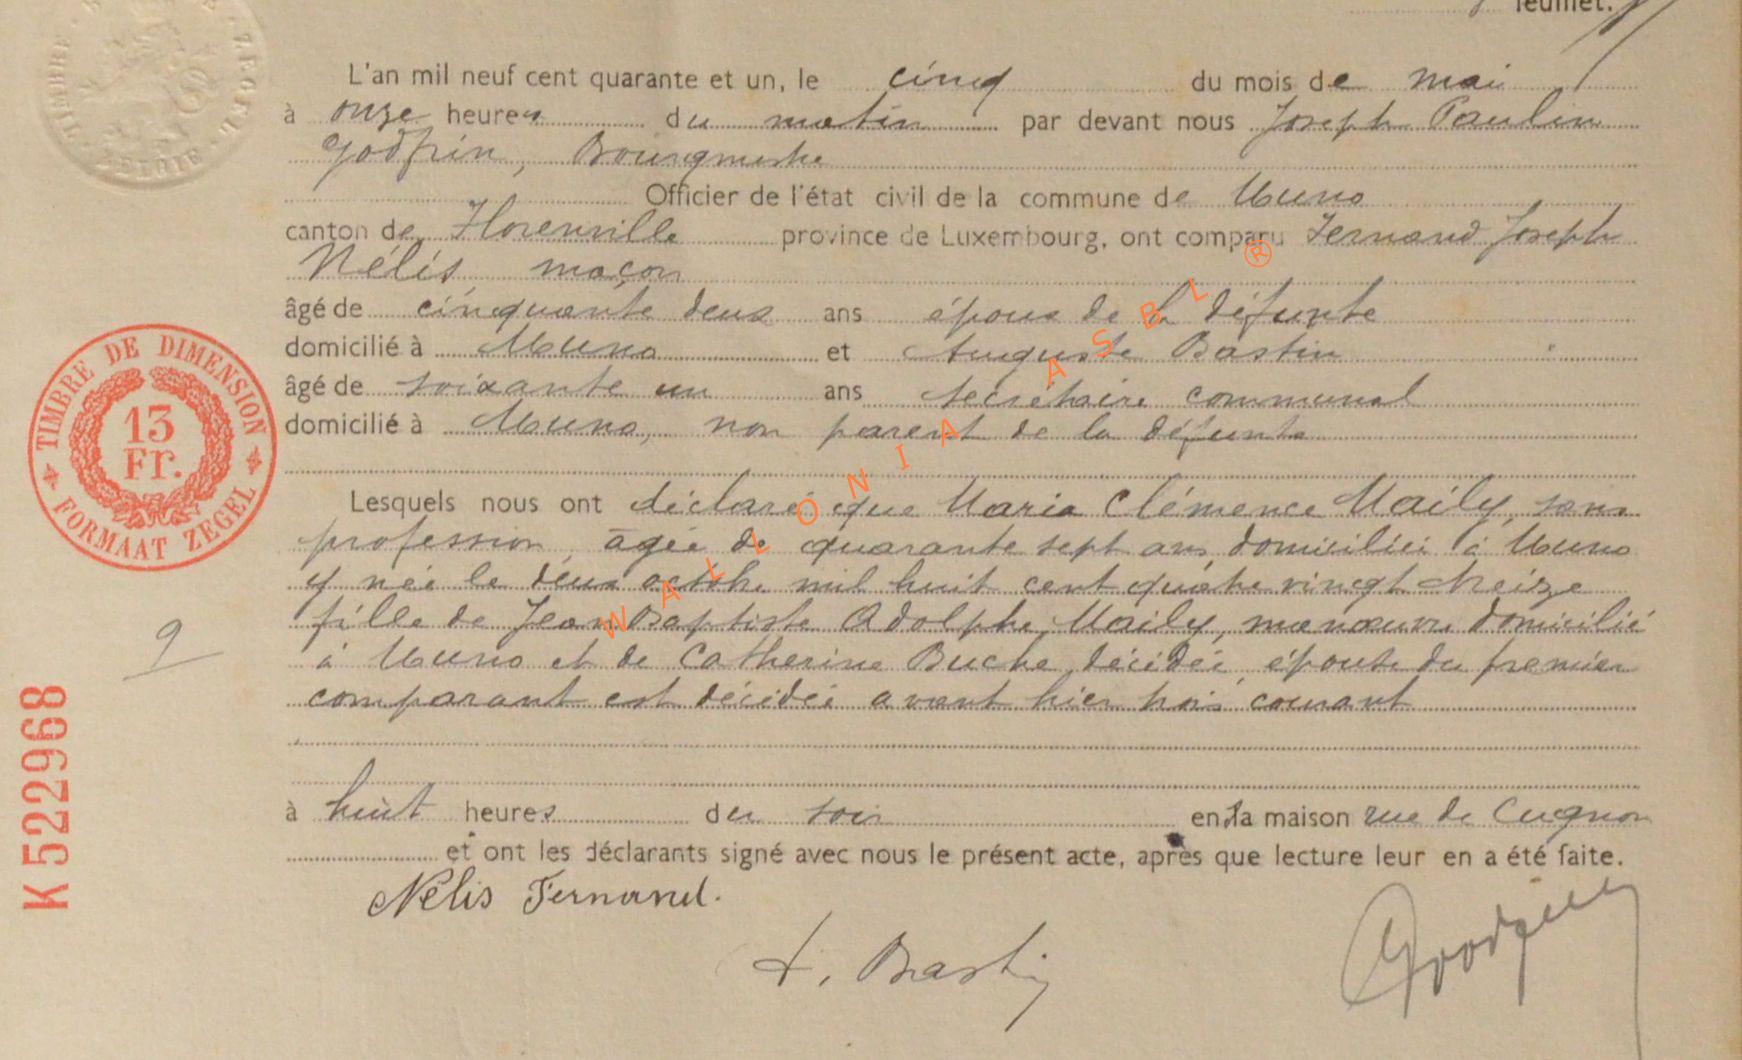 feuillet.
L'an mil neuf cent quarante et un, le cinq du mois de mai
à onze heures du matin par devant nous Joseph Paulin
Godfrin, Bourgmestre
Officier de l'état civil de la commune de Muno
canton de Florenville province de Luxembourg, ont comparu Fernand Joseph
Nélis maçon
âgé de cinquante deux ans époux de la défunte
domicilié à Muno et Auguste Bastin
âgé de soixante un ans secrétaire communal
domicilié à Muno, non parent de la défunte
Lesquels nous ont déclaré que Maria Clémence Maily, sans
profession, âgée de quarante sept ans, domiciliée à Muno
y née le deux octobre mil huit cent quatre vingt treize
fille de Jean Baptiste Adolphe Maily, manœuvre domicilié
à Muno et de Catherine Buche décédée, épouse du premier
comparant est décédée avant hier trois courant
à huit heures du soir en la maison rue de Cugnon
et ont les déclarants signé avec nous le présent acte, après que lecture leur en a été faite.
Nélis Fernand.
A. Bastin
TIMBRE ZEGEL BELGIE
TIMBRE DE DIMENSION
13
Fr.
FORMAAT ZEGEL
9
K 522968
WALLONIA ASBL ®